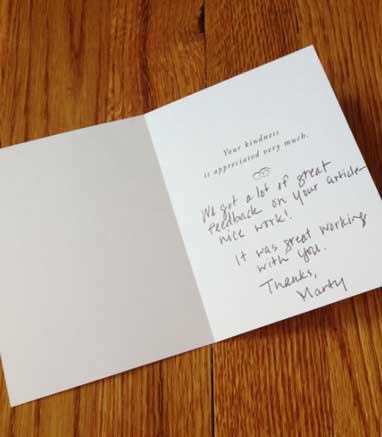 Your kindness
is appreciated very much.
We got a lot of great
feedback on your article-
nice work!
It was great working
with you.
Thanks,
Marty